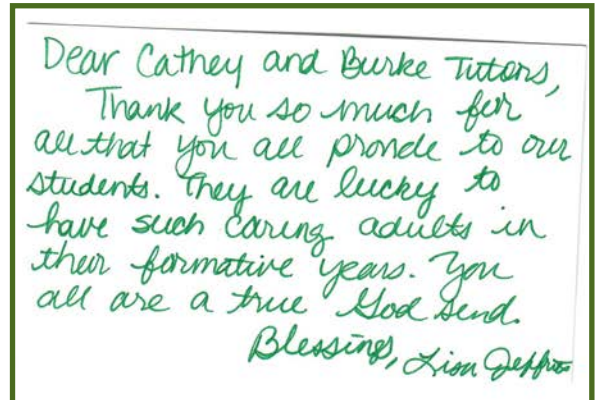 Dear Cathey and Burke Tutors,
Thank you so much for
all that you all provide to our
students. They are lucky to
have such caring adults in
their formative years. You
all are a true God send.
Blessings, Lisa